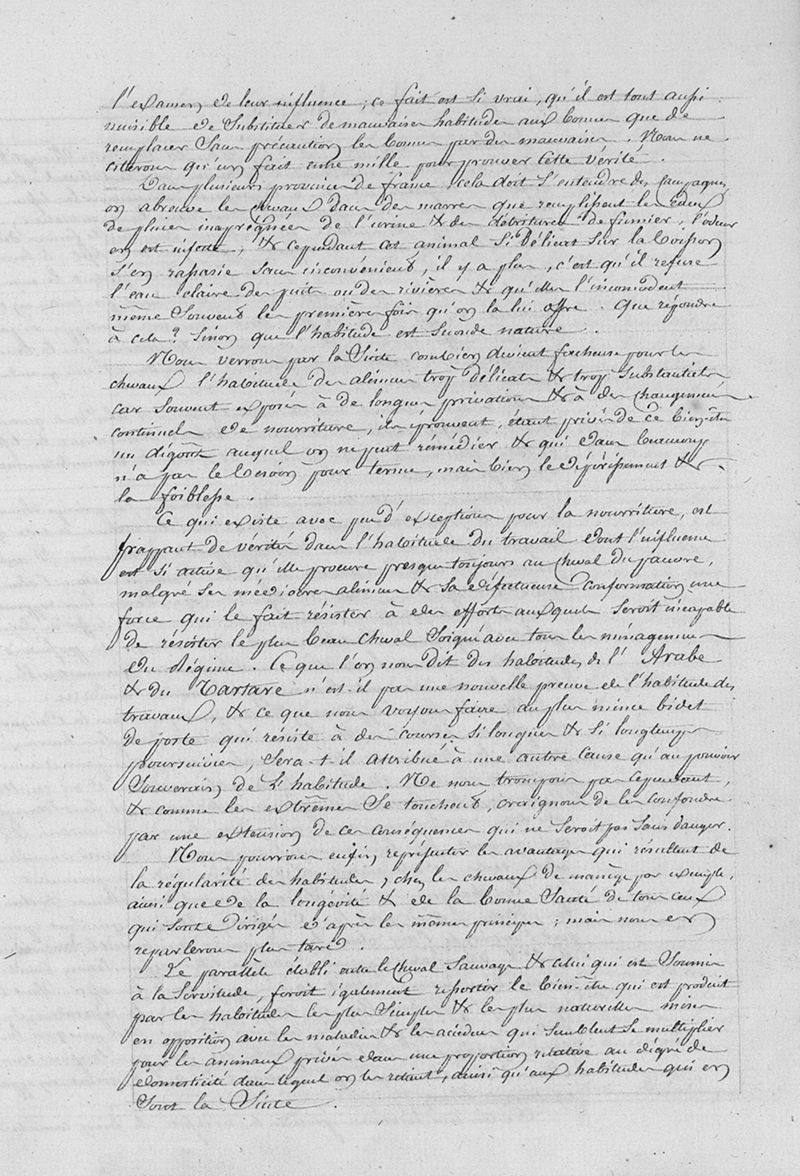 l'examen de leur influence; ce fait est si vrai, qu'il est tout aussi
nuisible de substituer de mauvaises habitudes aux bonnes que de
remplacer sans précautions les bonnes par des mauvaises. Nous ne
citerons qu'un fait entre mille pour prouver cette vérité.
Dans plusieurs provinces de france (cela doit s'entendre des campagnes)
on abreuve les chevaux dans des marres que remplissent les eaux
de pluies inapregnées de l'urine & des détritures de fumier, l'odeur
en est infecte, & cependant cet animal si délicat sur la boisson
s'en rassasie sans inconvenients, il y a plus, c'est qu'il refuse
l'eau claire des puits ou des rivières & qu'elles l'incomodent
même souvent les premières fois qu'on la lui offre. Que répondre
à cela? Sinon que l'habitude est seconde nature.
Nous verrons par la suite combien devient facheuse pour les
chevaux l'habitude des alimens trop délicats & trop substantiels
car souvent exposés à de longues privations & à des changemens
continuels de nourriture, ils éprouvent, étant privés de ce bien-être
un dégoût auquel on ne peut rémédier & qui dans beaucoup
n'a pas le besoin pour terme, mais bien le dépérissement &
la foiblesse.
Ce qui existe avec peu d'exceptions pour la nourriture, est
frappant de vérités dans l'habitude du travail dont l'influence
est si active qu'elle procure presque toujours au cheval du pauvre,
malgré ses médiocres alimens & sa défectueuse conformation, une
force qui le fait résister à des efforts auxquels seroit incapable
de résister le plus beau cheval soigné avec tous les ménagemens
du régime. Ce que l'on nous dit des habitudes de l'Arabe
& du Tartare n'est-il pas une nouvelle preuve de l'habitude des
travaux, & ce que nous voyons faire au plus mince bidet
de poste qui résiste à des courses si longues & si longtemps
poursuivies, sera-t-il attribué à une autre cause qu'au pouvoir
souverain de l'habitude. Ne nous trompons pas cependant,
& comme les extrêmes se touchent, craignons de les confondre
par une extension de ces conséquences qui ne seroit pas sans danger.
Nous pourrons enfin représenter les avantages qui résultent de
la régularité des habitudes, chez les chevaux de manège par exemple,
ainsi que de la longévité & de la bonne santé de tous ceux
qui sont dirigés d'après les mêmes principes; mais nous en
reparlerons plus tard.
Le parallèle établi entre le cheval sauvage & celui qui est soumis
à la servitude, feroit également ressortir le bien-être qui est produit
par les habitudes les plus simples & les plus naturelles mises
en opposition avec les maladies & les accidens qui semblent se multiplier
pour les animaux privés dans une proportion relative au dégré de
domesticité dans lequel on les retient, ainsi qu'aux habitudes qui en
sont la suite.